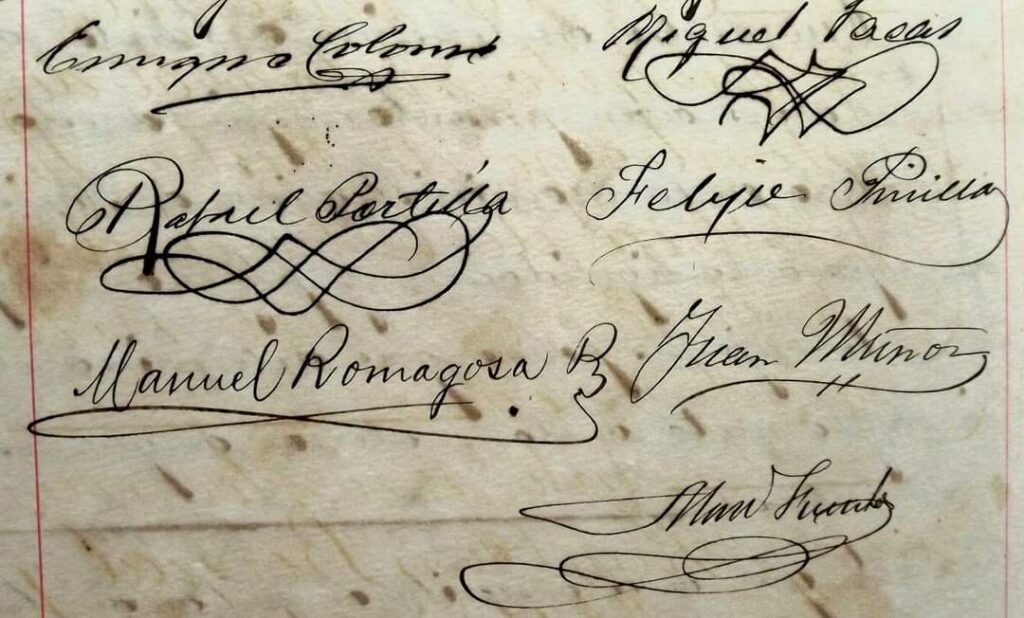 Enrique Colomé Miguel Casas
Rafael Portilla Felipe Pinilla
Manuel Romagosa B Juan Muñoz